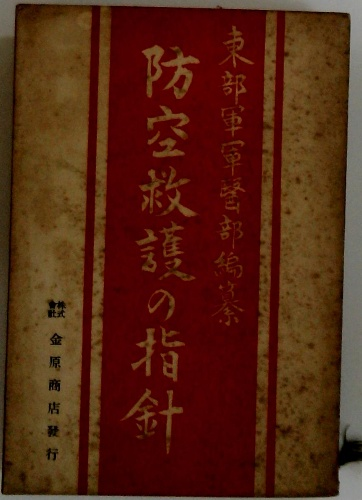 東部軍軍醫部編纂
防空救護の指針
株式會社 金原商店發行